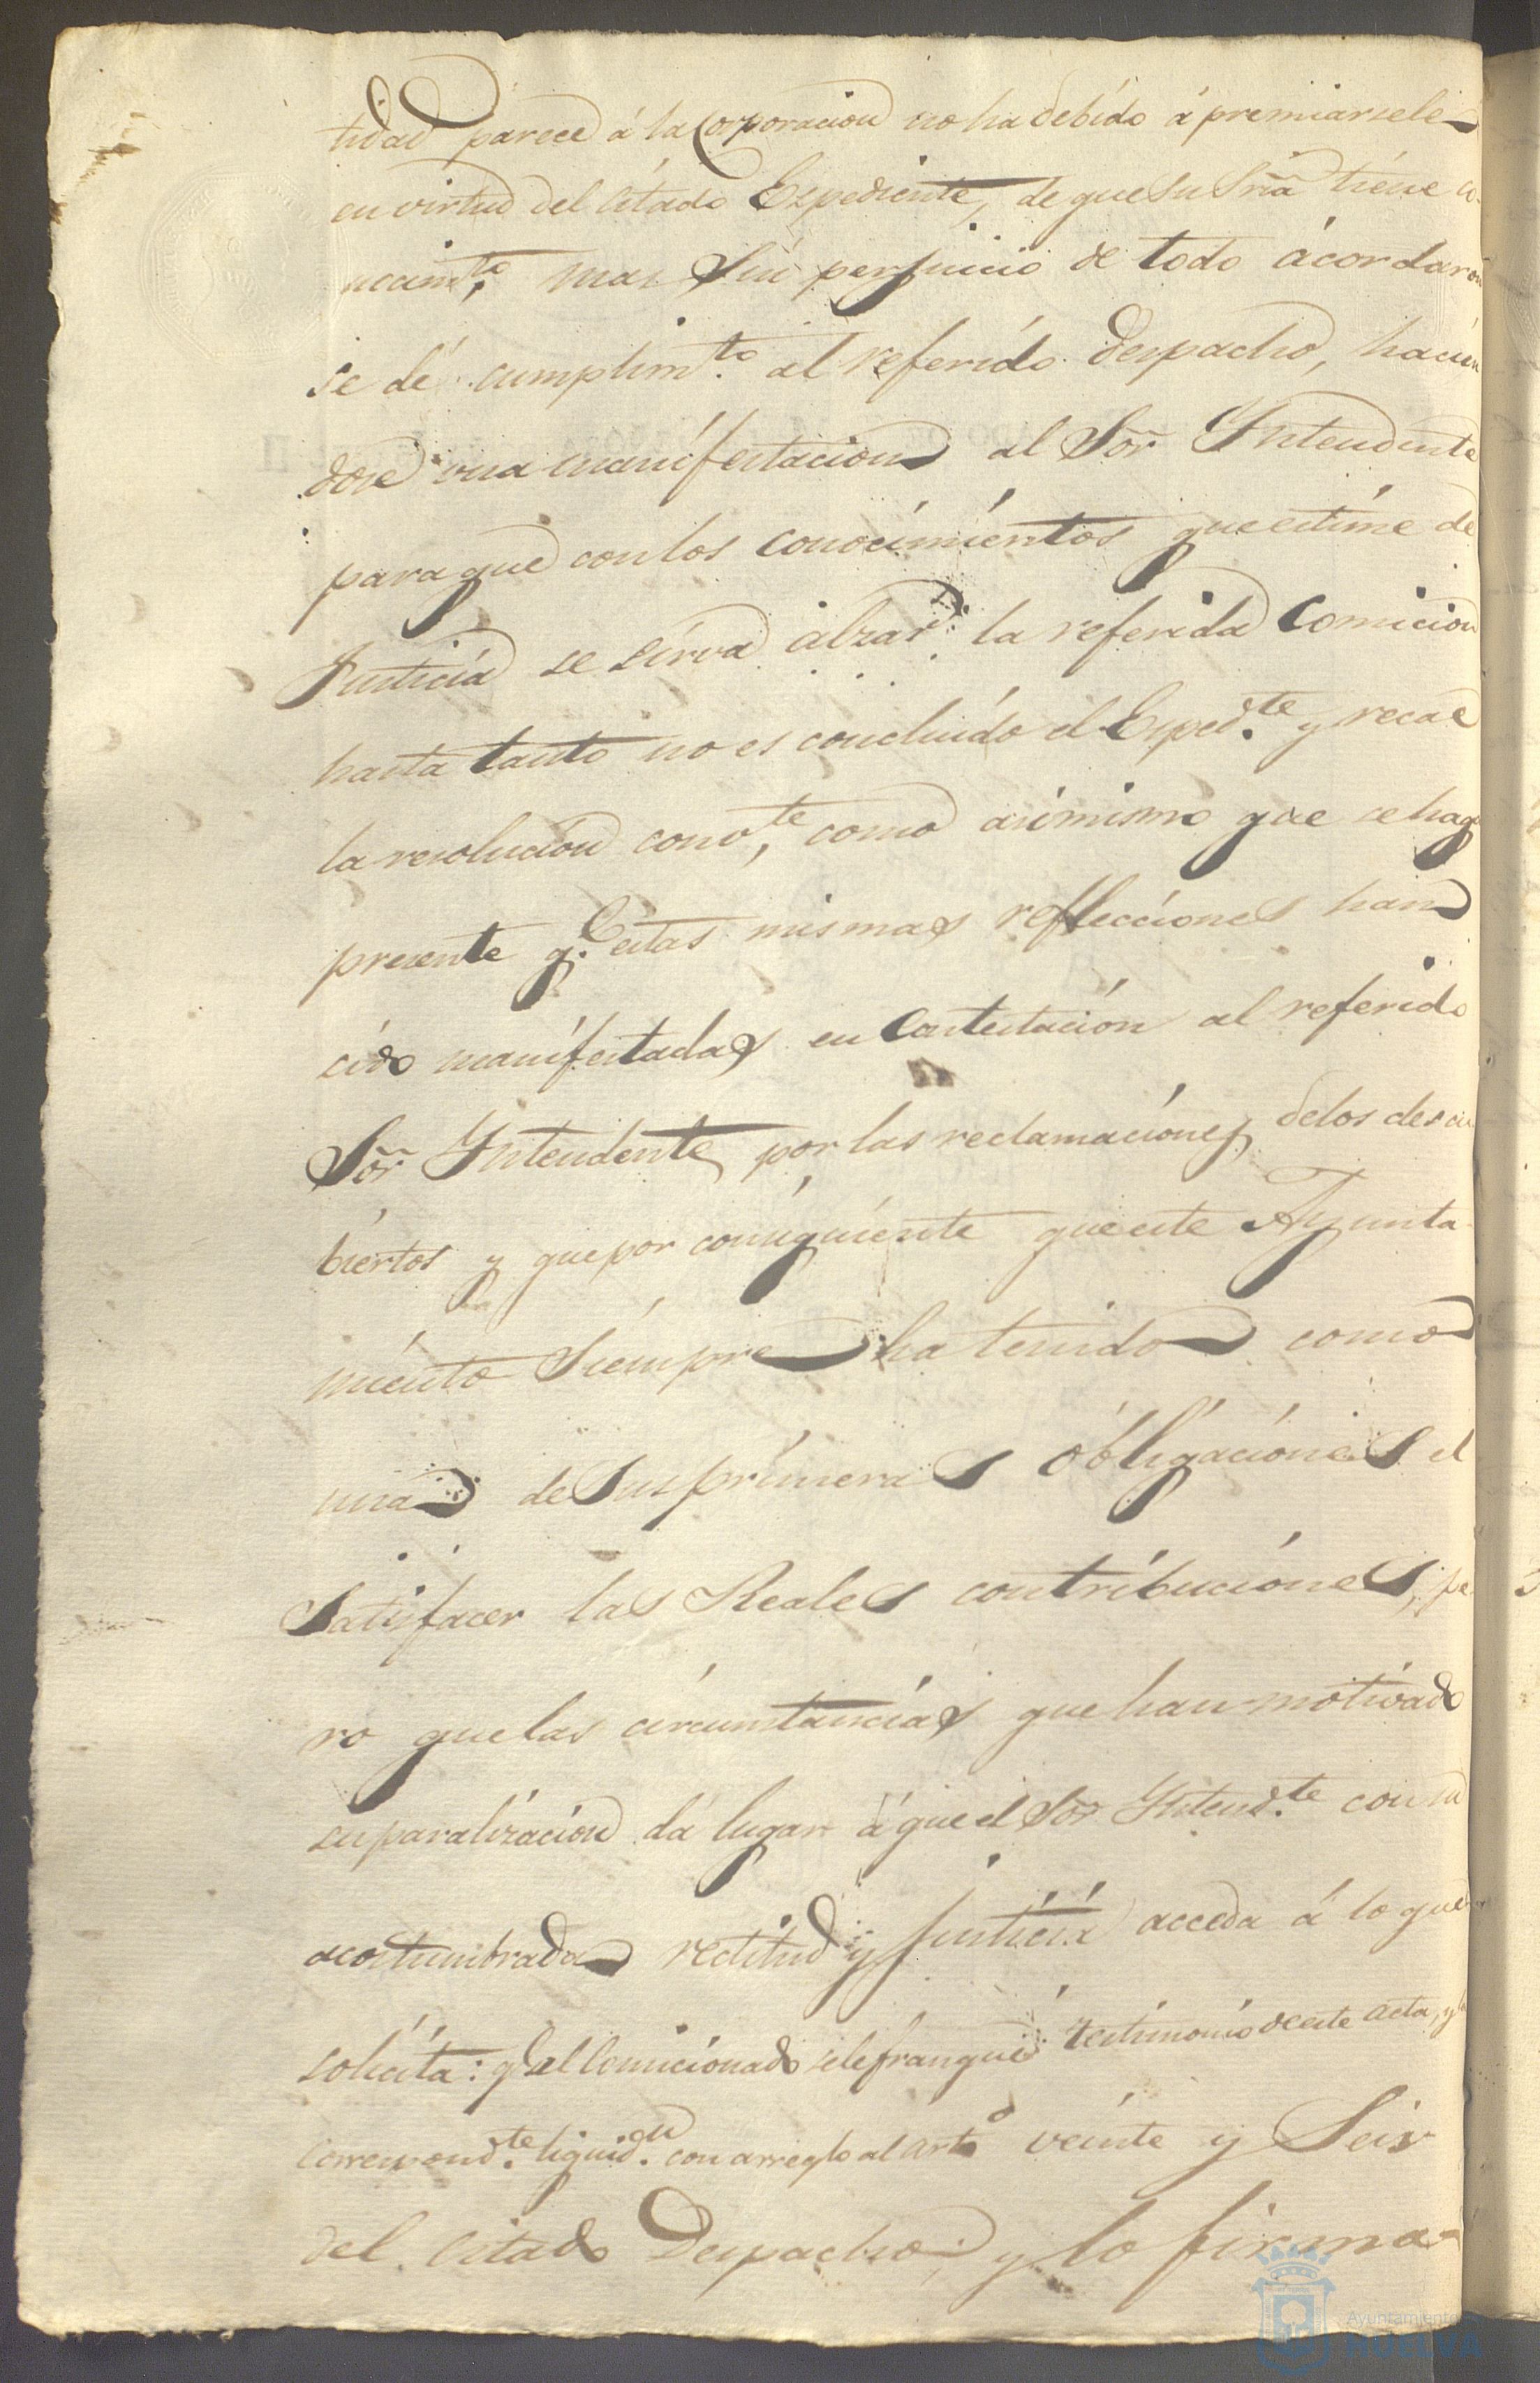 tidad parece á la Corporacion no ha debido á premiarsele
en virtud del citado Expediente, de que su Sria tiene co-
nocimto. mas Sin perjuicio de todo ácordaron
se dé cumplimto. al referido Despacho, hacien
dose una manifestacion al Sor Yntendente
para que con los conocimientos que estime de
Justicia se sirva alzar la referida Comicion
hasta tanto no es concluido el Expedte. y recae
la resolucion conste, como asimismo que se haga
presente q.e estas mismas reflecciones han
cido manifestadas en Contestacion al referido
Sor Yntendente, por las reclamaciones delos descu
biertos y que por consiguiente que este Ayunta-
miento Siempre ha tenido como
una de Sus primeras óbligaciones el
Satisfacer las Reales contribuciones, pe
ro que las circunstancias que han motivado
su paralizacion dá lugar á que el Sor Yntendte. con su
acostumbrada rectitud y Justicia acceda á lo que
solicita: q.e al Comicionado sele franquee testimonio de este acta, y la
correspondte. liquidn. con arreglo al arto veinte y Seis
del Citado Despacho; y lo firma-
Ayuntamiento
HUELVA